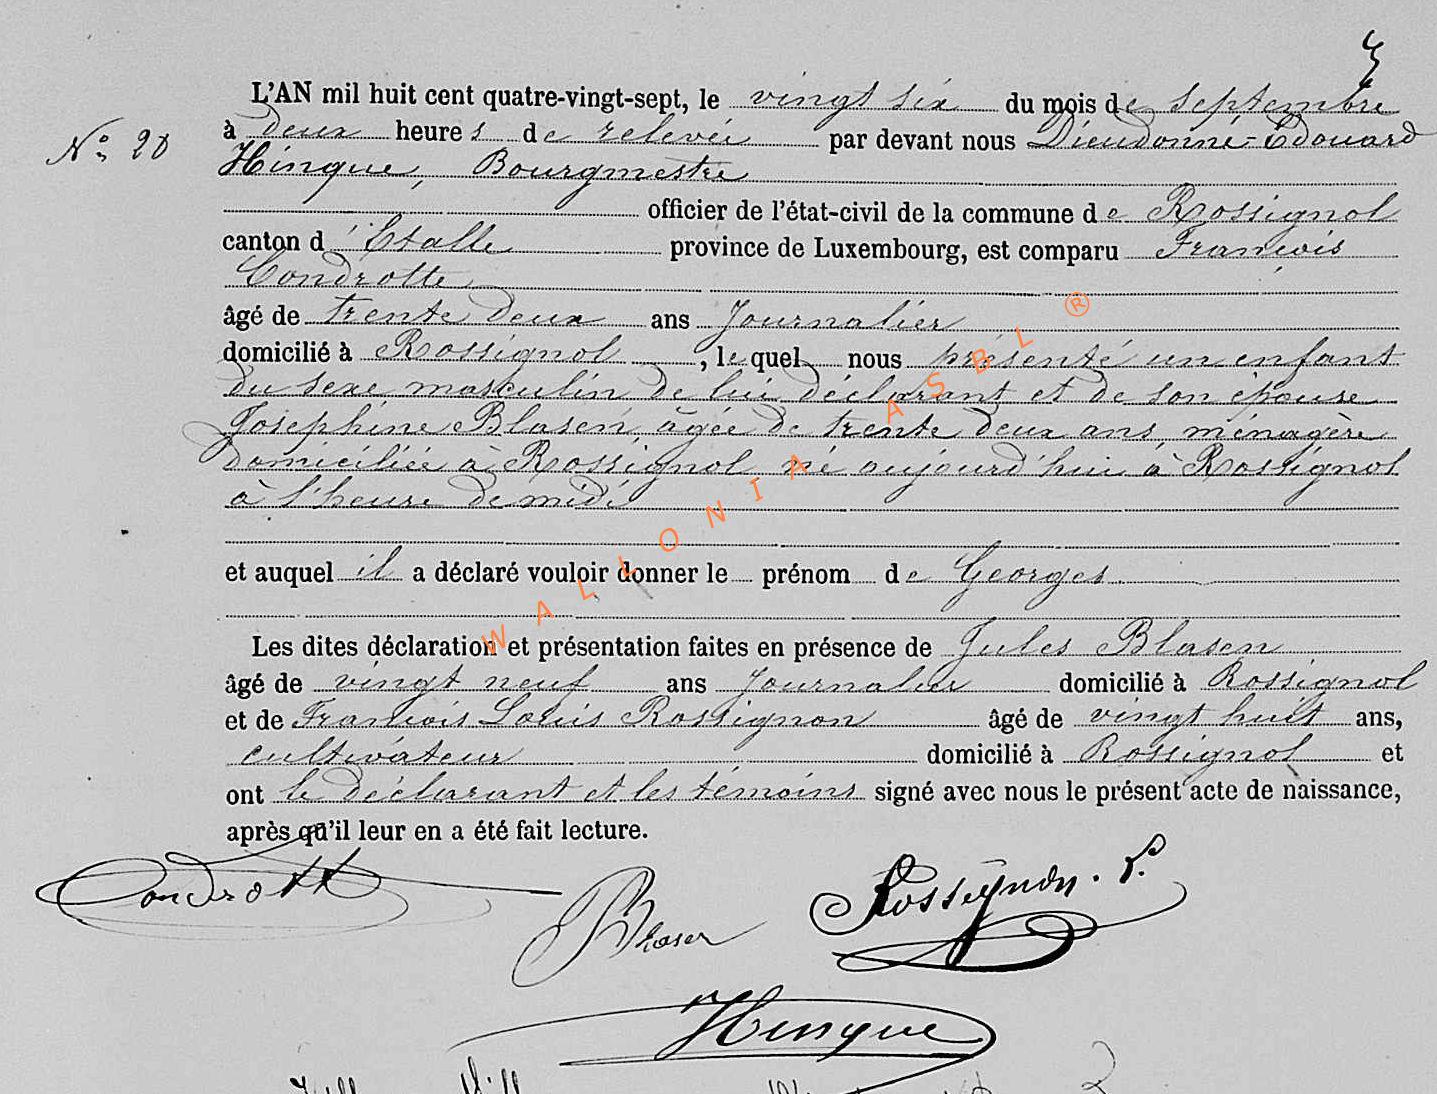 L'AN mil huit cent quatre-vingt-sept, le vingt six du mois de septembre
N° 20
à deux heures de relevée par devant nous Dieudonné-Edouard
Hinque, Bourgmestre
officier de l'état-civil de la commune de Rossignol
canton d'Etalle province de Luxembourg, est comparu François
Condrotte
âgé de trente deux ans Journalier
domicilié à Rossignol, lequel nous présenté un enfant
du sexe masculin de lui déclarant et de son épouse
Joséphine Blasen, âgée de trente deux ans, ménagère
domiciliée à Rossignol né aujourd'hui à Rossignol
à l'heure de midi
et auquel il a déclaré vouloir donner le prénom de Georges
Les dites déclaration et présentation faites en présence de Jules Blasen
âgé de vingt neuf ans Journalier domicilié à Rossignol
et de François Louis Rossignon âgé de vingt huit ans,
cultivateur domicilié à Rossignol et
ont le déclarant et les témoins signé avec nous le présent acte de naissance,
après qu'il leur en a été fait lecture.
Condrott
Blasen
Rossignon. L.
Hinque
WALLONIA ASBL ®